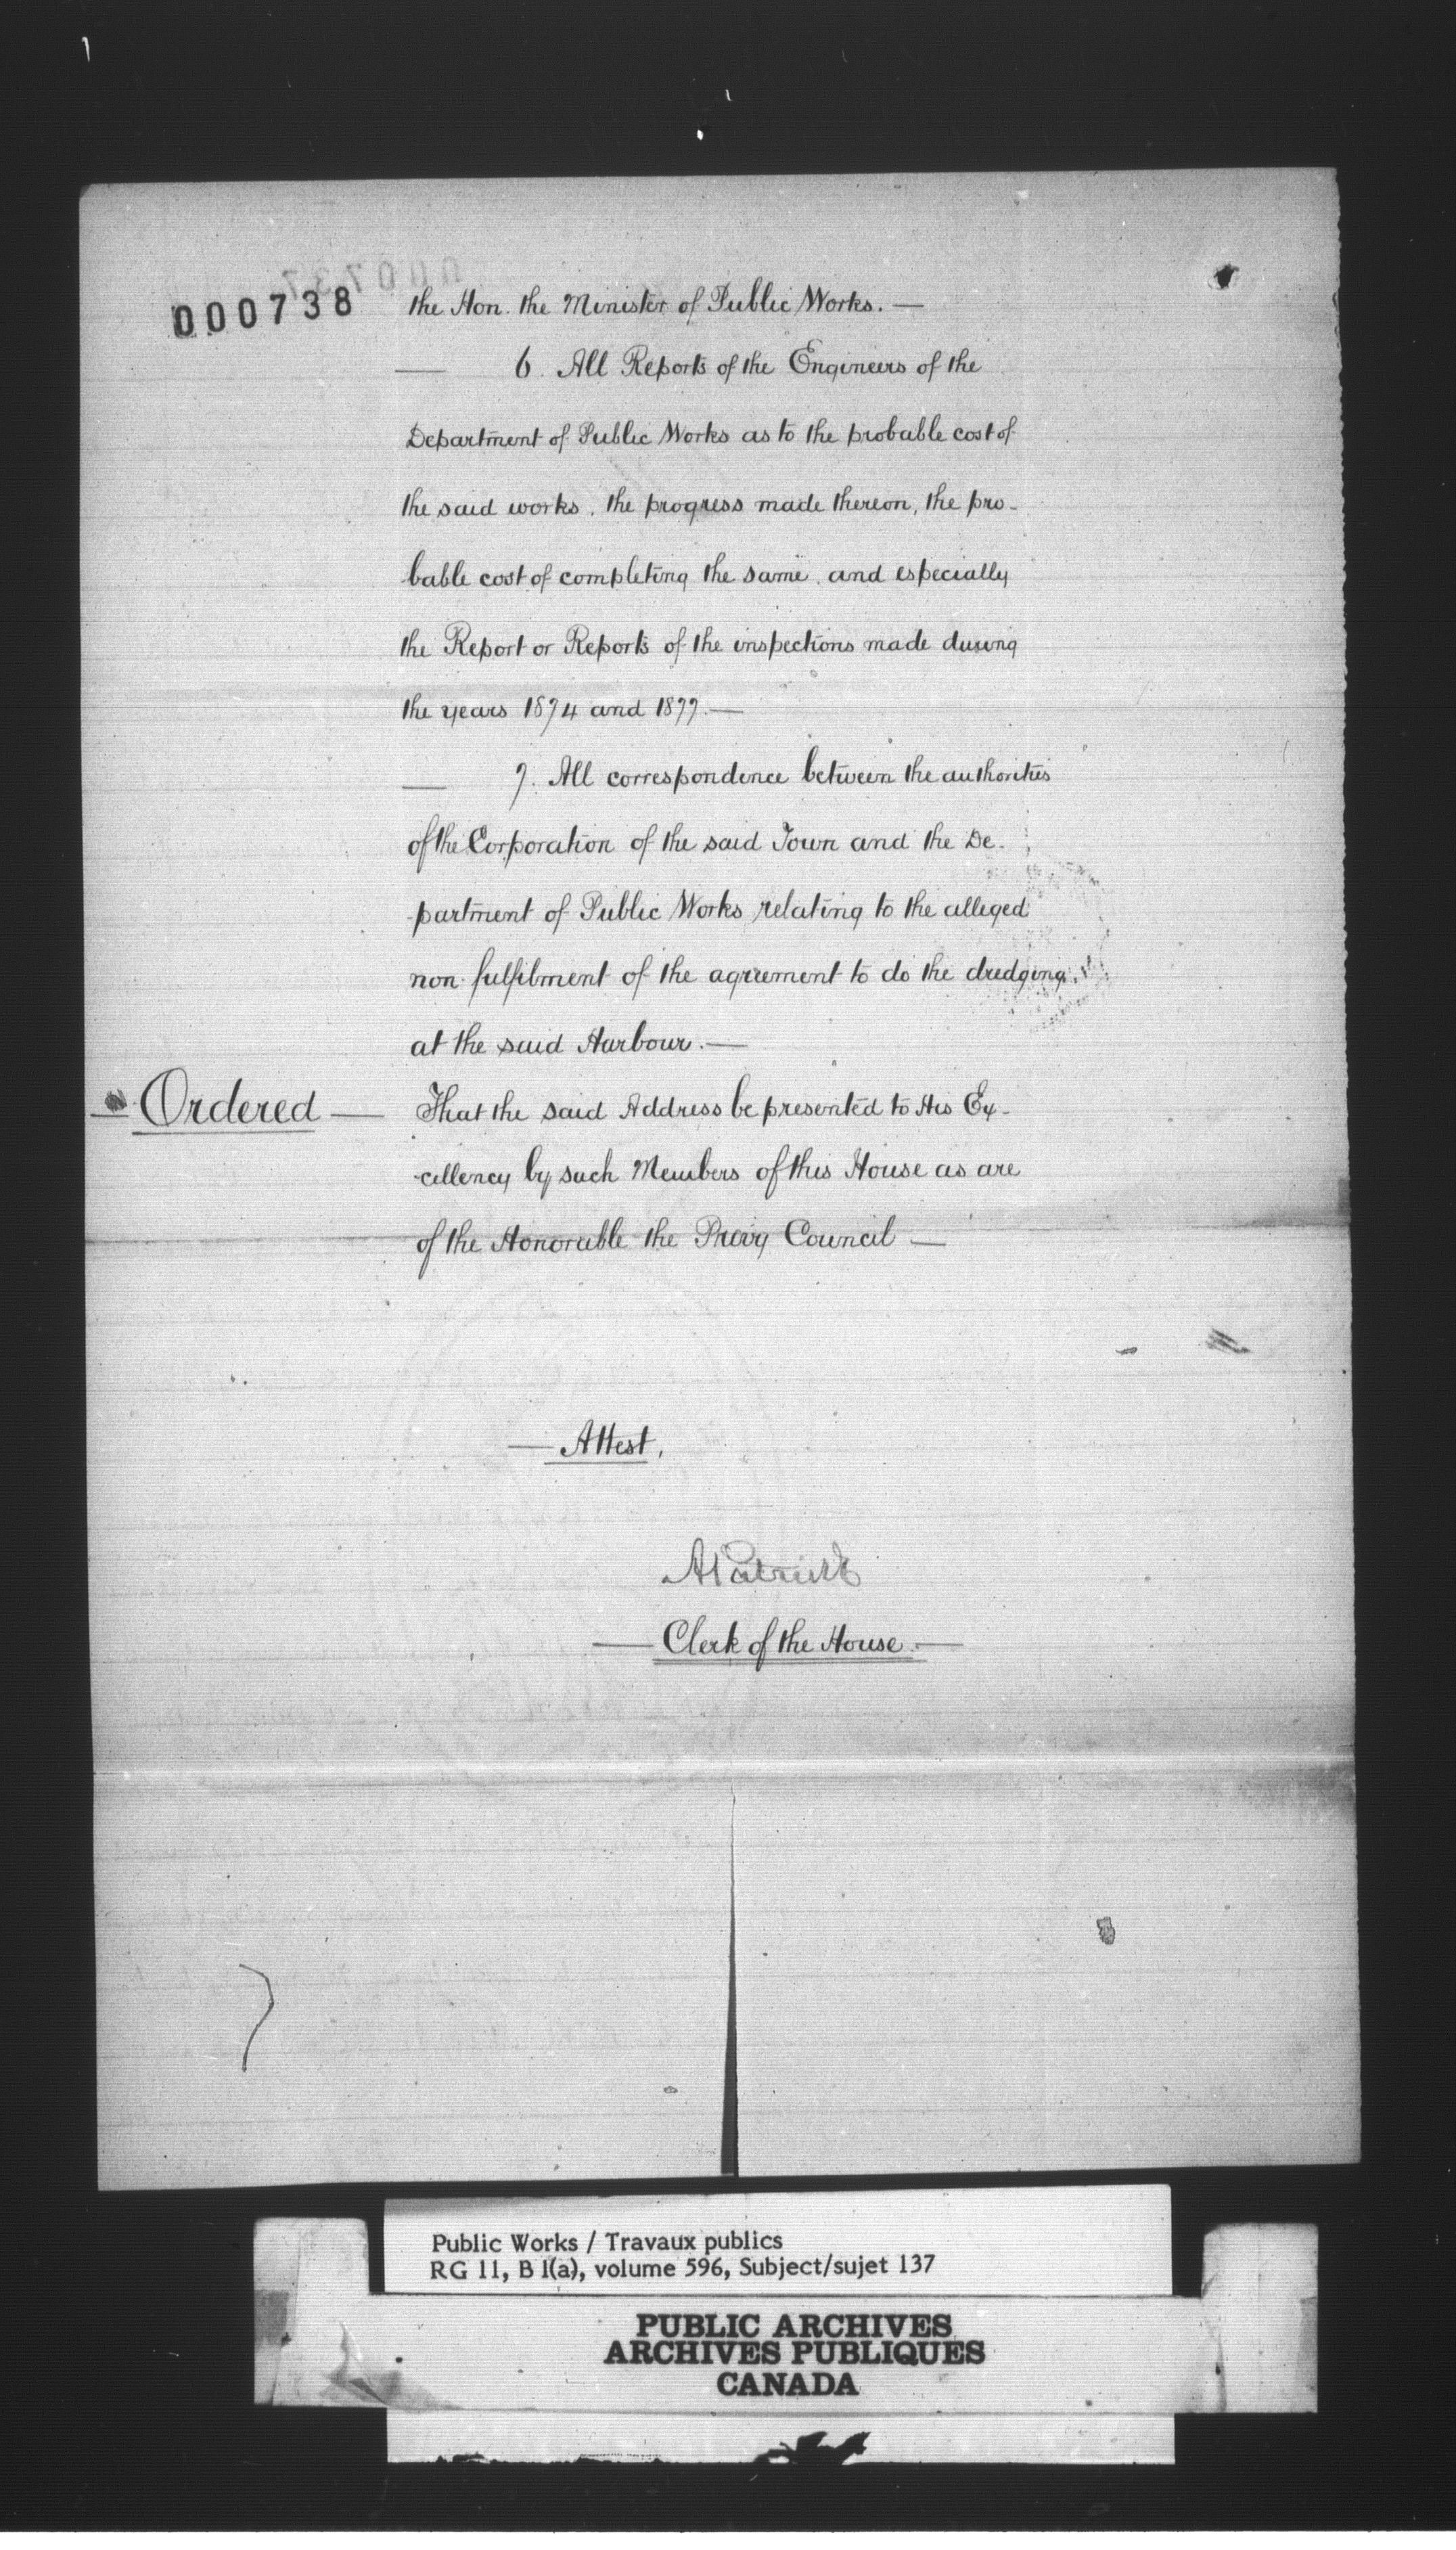 000738
the Hon. the Minister of Public Works. —
— 6. All Reports of the Engineers of the
Department of Public Works as to the probable cost of
the said works, the progress made thereon, the pro-
bable cost of completing the same, and especially
the Report or Reports of the inspections made during
the years 1874 and 1877. —
— 7. All correspondence between the authorities
of the Corporation of the said Town and the De-
partment of Public Works relating to the alleged
non-fulfilment of the agreement to do the dredging
at the said Harbour. —
— Ordered — That the said Address be presented to His Ex-
cellency by such Members of this House as are
of the Honorable the Privy Council —
— Attest,
A Patrick
— Clerk of the House. —
Public Works / Travaux publics
RG 11, B 1(a), volume 596, Subject/sujet 137
PUBLIC ARCHIVES
ARCHIVES PUBLIQUES
CANADA